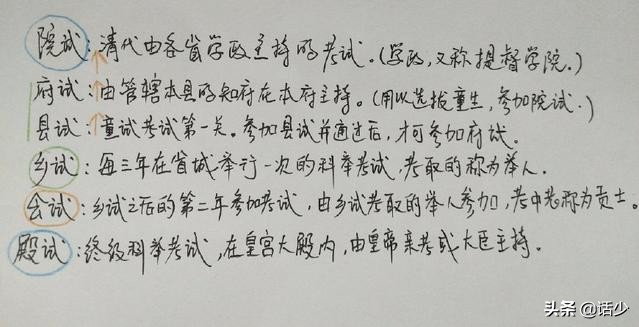 院试：清代由各省学政主持的考试。（学政，又称提督学院。）
府试：由管辖本县的知府在本府主持。（用以选拔童生，参加院试。）
县试：童试考试第一关。参加县试并通过后，才可参加府试。
乡试：每三年在省城举行一次的科举考试，考取的称为举人。
会试：乡试之后的第二年参加考试，由乡试考取的举人参加，考中者称为贡士。
殿试：终级科举考试，在皇宫大殿内，由皇帝亲考或大臣主持。
头条 @话少